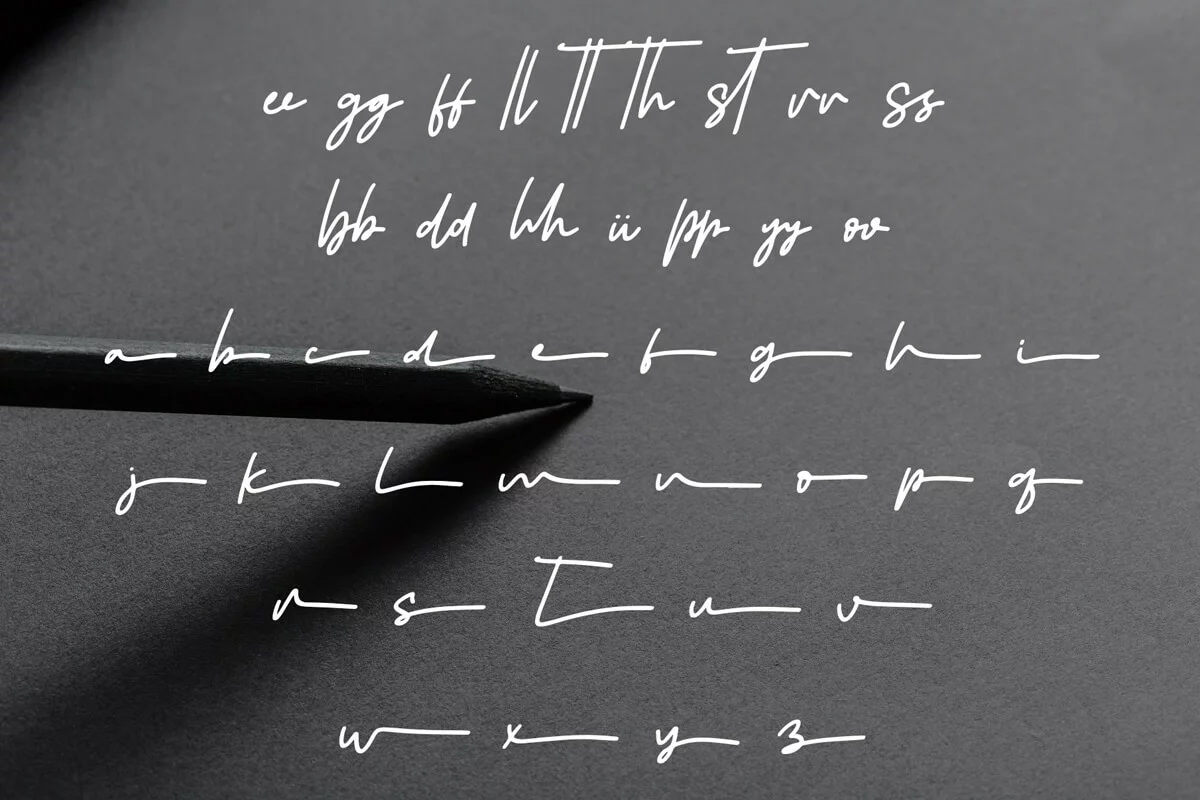 ee gg ff ll tt th st rr ss
bb dd hh ii pp yy oo
a b c d e f g h i
j k l m n o p q
r s t u v
w x y z